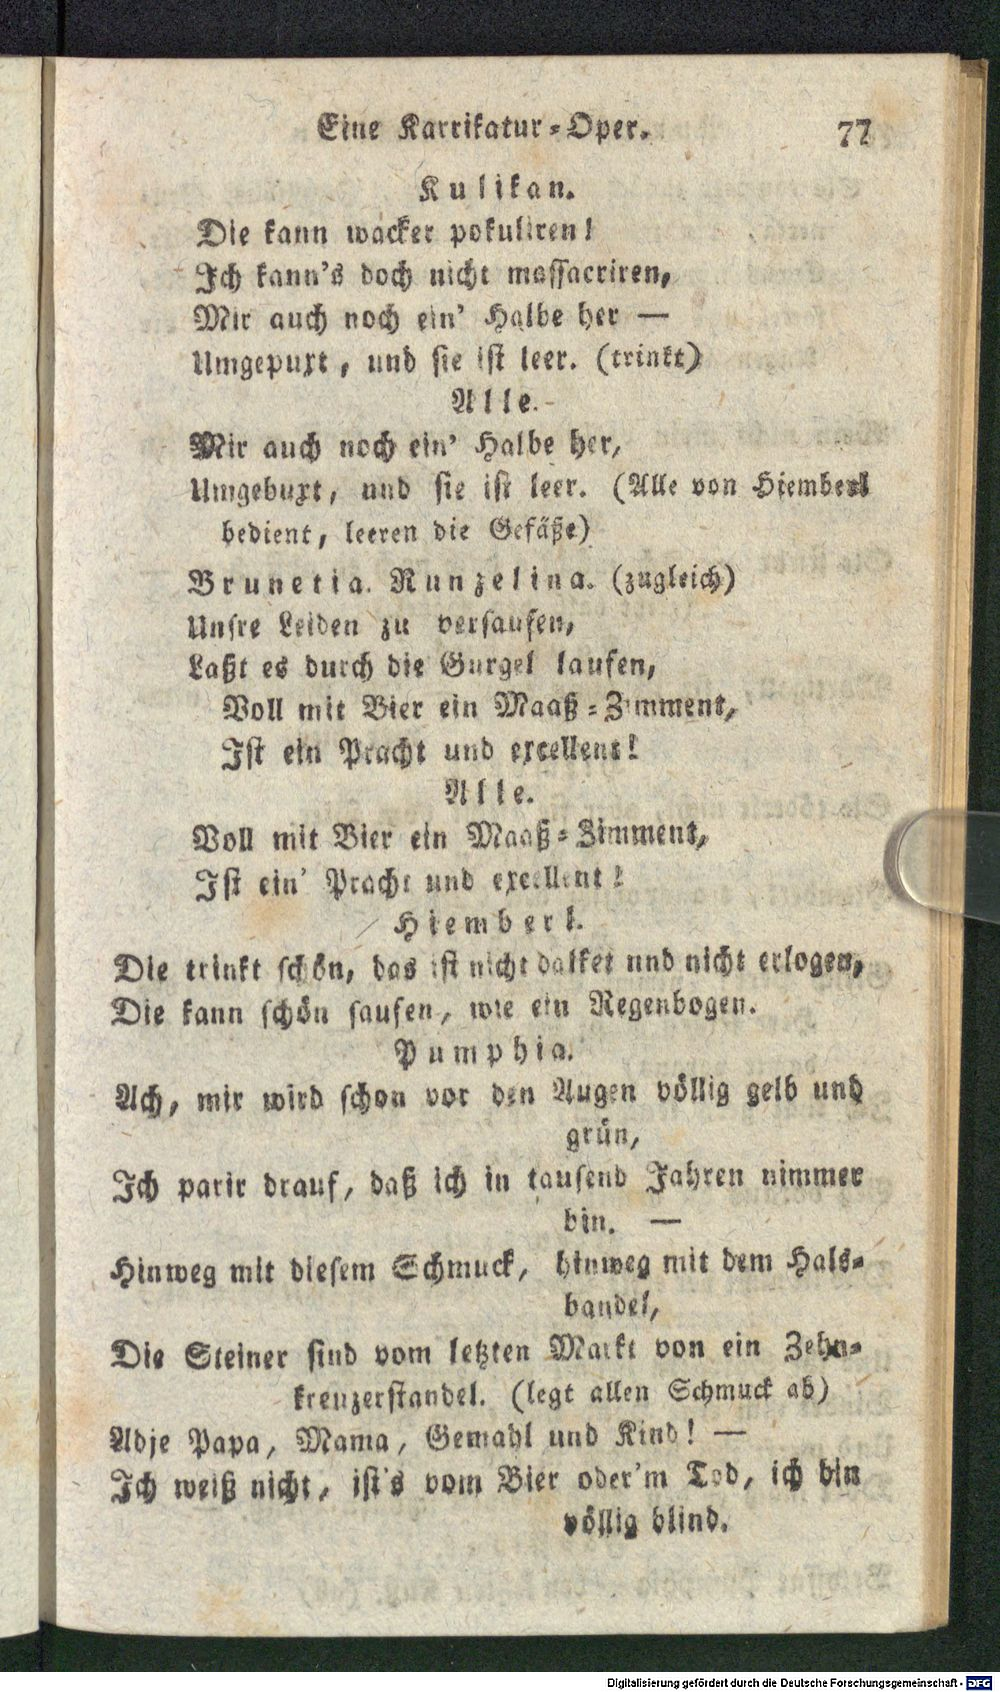 Eine Karrikatur-Oper. 77
Kulikan.
Die kann wacker pokuliren!
Ich kann's doch nicht massacriren,
Mir auch noch ein' Halbe her —
Umgepuxt, und sie ist leer. (trinkt)
Alle.
Mir auch noch ein' Halbe her,
Umgebuxt, und sie ist leer. (Alle von Hiemberl
bedient, leeren die Gefäße)
Brunetia. Runzelina. (zugleich)
Unsre Leiden zu versaufen,
Laßt es durch die Gurgel laufen,
Voll mit Bier ein Maaß-Zimment,
Ist ein Pracht und excellent!
Alle.
Voll mit Bier ein Maaß-Zimment,
Ist ein' Pracht und excellent!
Hiemberl.
Die trinkt schön, das ist nicht dalket und nicht erlogen,
Die kann schön saufen, wie ein Regenbogen.
Pumphia.
Ach, mir wird schon vor den Augen völlig gelb und
grün,
Ich parir drauf, daß ich in tausend Jahren nimmer
bin. —
Hinweg mit diesem Schmuck, hinweg mit dem Hals-
bandel,
Die Steiner sind vom letzten Markt von ein Zehn-
kreuzerstandel. (legt allen Schmuck ab)
Adje Papa, Mama, Gemahl und Kind! —
Ich weiß nicht, ist's vom Bier oder'm Tod, ich bin
völlig blind.
Digitalisierung gefördert durch die Deutsche Forschungsgemeinschaft - DFG